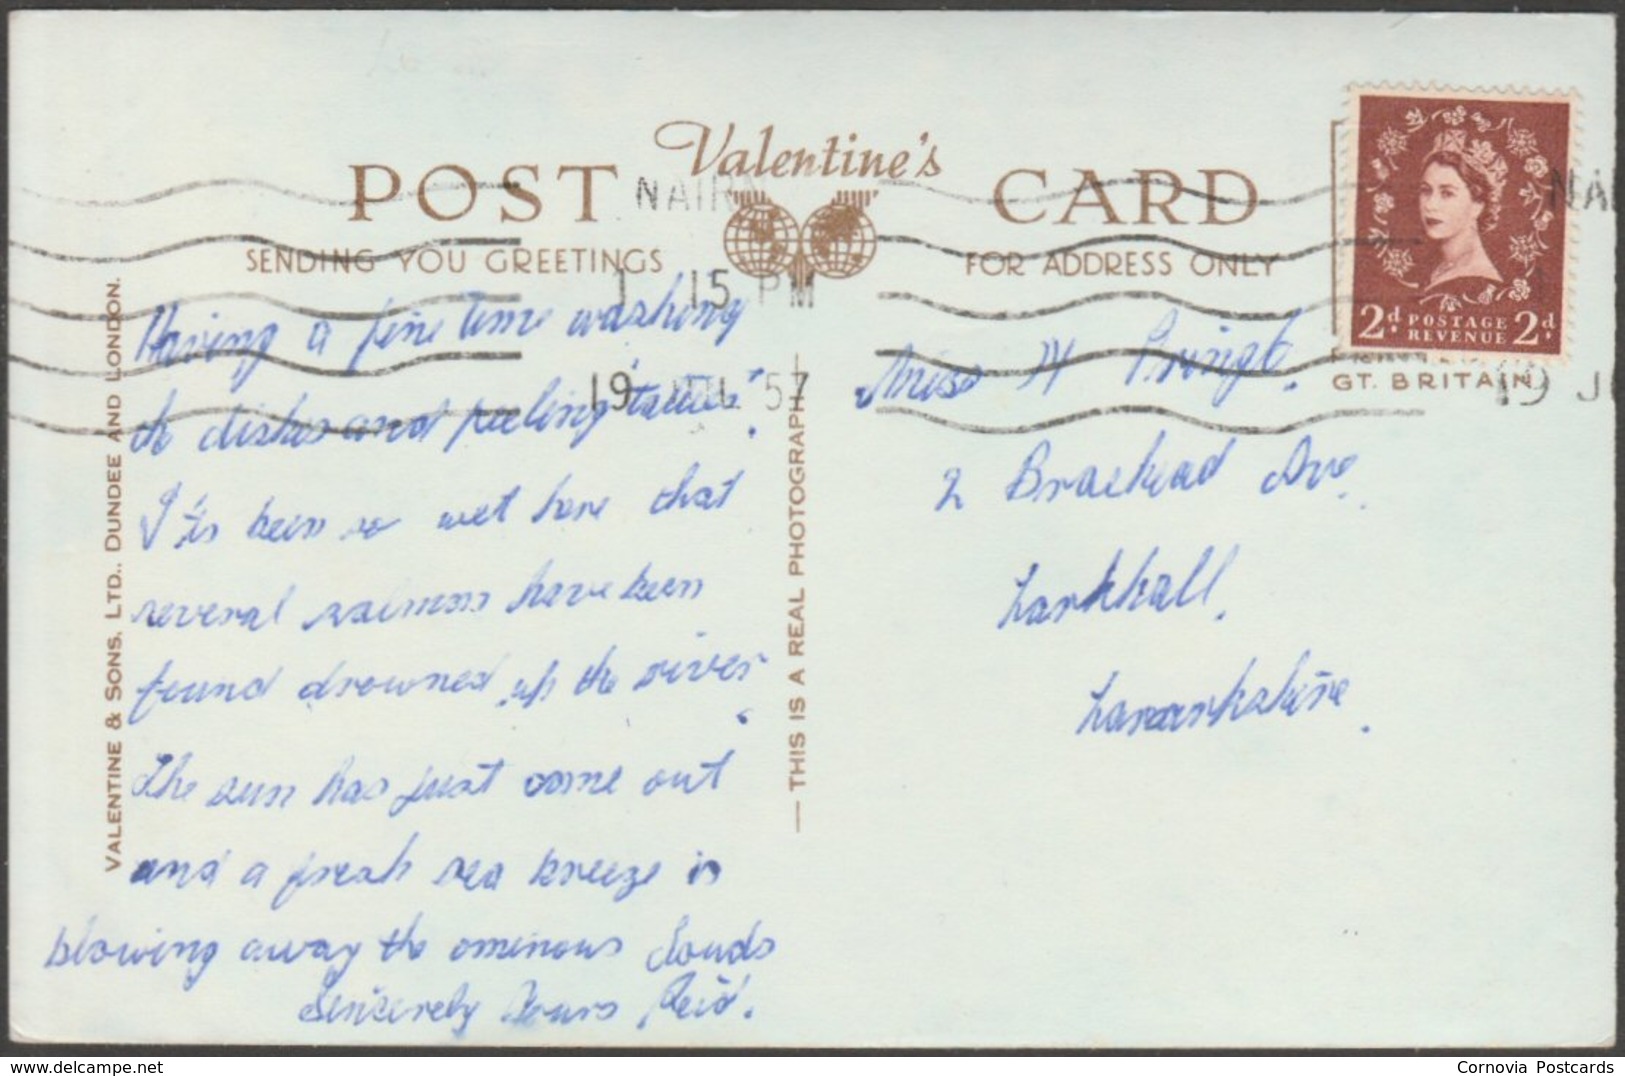 Valentine's
POST CARD
SENDING YOU GREETINGS
FOR ADDRESS ONLY
NAIRN
1 15 PM
19 JUL 57
NAI
19 JU
2d. POSTAGE REVENUE 2d.
GT. BRITAIN
VALENTINE & SONS, LTD., DUNDEE AND LONDON.
THIS IS A REAL PHOTOGRAPH
Having a fine time washing
the dishes and peeling "tatties".
It's been so wet here that
several salmon have been
found drowned up the river.
The sun has just come out
and a fresh sea breeze is
blowing away the ominous clouds
Sincerely Yours Reid.
Miss H Pringle.
2 Braehead Ave.
Larkhall.
Lanarkshire.
Cornovia Postcards
www.delcampe.net